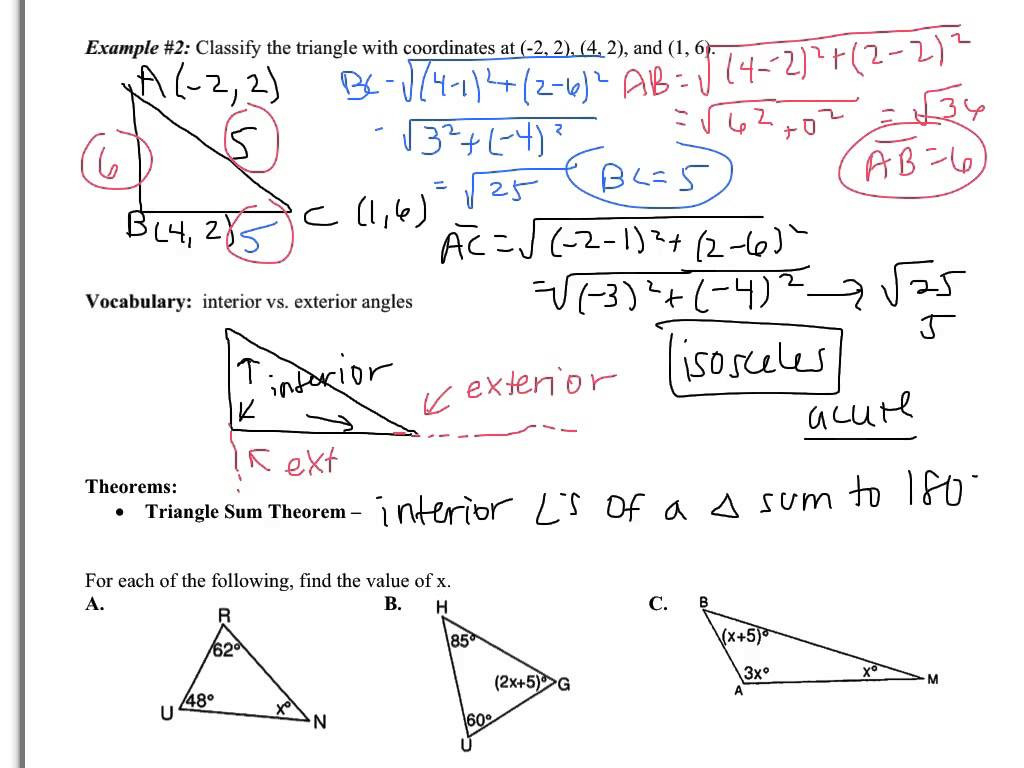 Example #2: Classify the triangle with coordinates at (-2, 2), (4, 2), and (1, 6).
A(-2, 2)
6
5
B(4, 2)
5
C (1, 6)
BC = √(4-1)²+(2-6)²
= √3²+(-4)²
= √25
BC = 5
AB = √(4--2)²+(2-2)²
= √6²+0² = √36
AB = 6
AC = √(-2-1)²+(2-6)²
= √(-3)²+(-4)² → √25
5
isosceles
acute
Vocabulary: interior vs. exterior angles
interior
exterior
ext
Theorems:
• Triangle Sum Theorem – interior ∠'s of a Δ sum to 180°
For each of the following, find the value of x.
A.
R
62°
48°
x°
U
N
B.
H
85°
(2x+5)°
G
60°
U
C.
B
(x+5)°
3x°
x°
A
M